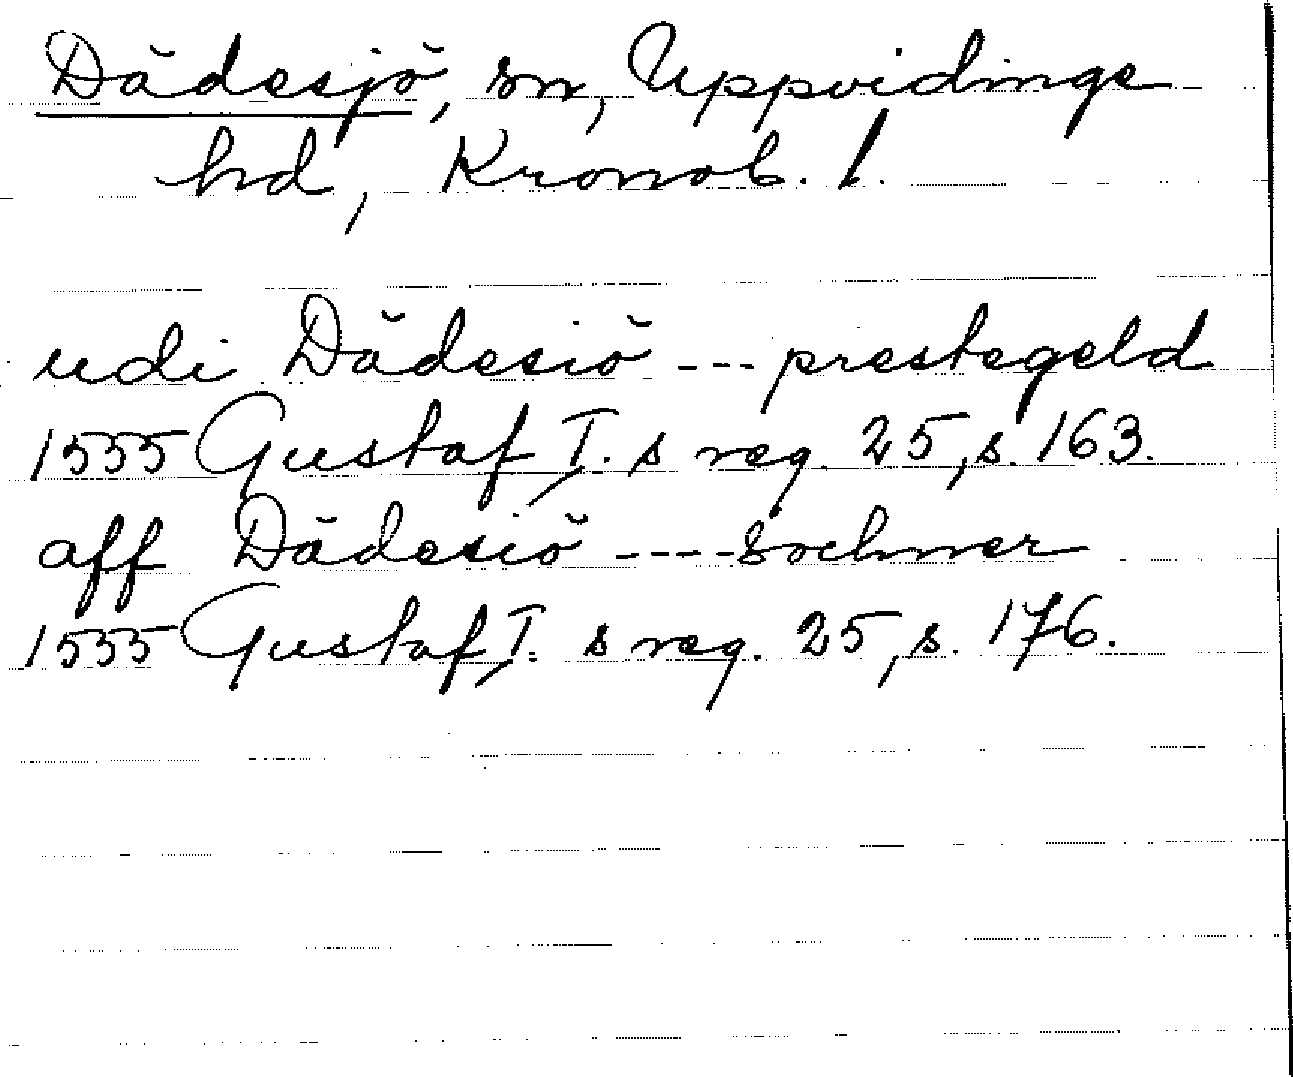 Dädesjö, sn, Uppvidinge
hd, Kronob. l.
udi Dädesiö --- prestegeld
1555 Gustaf I. s reg. 25, s. 163.
aff Dädesiö ---- sochner
1555 Gustaf I. s reg. 25, s. 176.